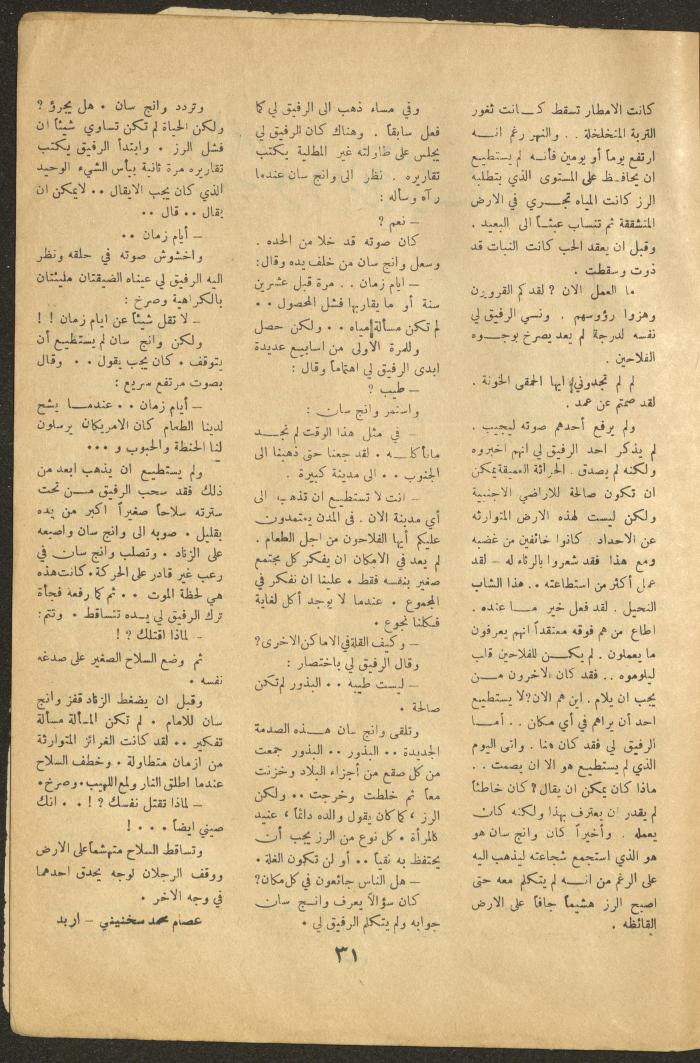 كانت الامطار تسقط كـانت ثغور
التربة المتخلخلة . . والنهر رغم انـه
ارتفع يوماً أو يومين فأنـه لم يستطيع
ان يحافظ على المستوى الذي يتطلبه
الرز كانت المياه تجـري في الارض
المتشققة ثم تنساب عبثـاً الى البعيد .
وقبل ان يعقد الحب كانت النبات قد
ذوت وسقطت .
ما العمل الان ؟ لقد كم القرويون
وهزوا رؤوسهم . ونسي الرفيق لي
نفسه لدرجة لم يعد يصرخ بوجـوه
الفلاحين .
لم لم تجدوني ايها الحمقى الخونة .
لقد صمتم عن عمد .
ولم يرفع أحدهم صوته ليجيب .
لم يذكر احد الرفيق لي انهم اخبروه
ولكنه لم يصدق . الحراثة العميقة يمكن
ان تكون صالحة للاراضي الاجنبية
ولكن ليست لهذه الارض المتوارثه
عن الاجداد . كانوا خائفين من غضبه
ومع هذا فقد شعروا بالرثاء له – لقد
عمل أكثر من استطاعته . . هذا الشاب
النحيل . لقد فعل خير مـا عنده .
اطاع من هم فوقه معتقداً انهم يعرفون
ما يعملون . لم يكـن للفلاحين قلب
ليلوموه . . فقد كان الاخرون مـن
يجب ان يلام . اين هم الان ؟ لا يستطيع
احد أن يراهم في أي مكان . . أمـا
الرفيق لي فقد كان هنا . واتى اليوم
الذي لم يستطيع هو الا ان يصمت . .
ماذا كان يمكن ان يقال ؟ كان خاطئاً
لم يقدر ان يعترف بهذا ولكنه كان
يعمله . وأخيراً كان وانج سان هو
هو الذي استجمع شجاعته ليذهب اليه
على الرغم من انـه لم يتكلم معه حتى
اصبح الرز هشيماً جافاً على الارض
القائظه .
وفي مساء ذهب الى الرفيق لي كما
فعل سابقاً . وهناك كان الرفيق لي
يجلس على طاولته غير المطلية يكتب
تقاريره . نظر الى وانج سان عندما
رآه وسأله :
– نعم ؟
كان صوته قد خلا من الحده .
وسعل وانج سان من خلف يده وقال :
– ايام زمان . . مرة قبل عشرين
سنة أو ما يقاربها فشل المحصول . .
لم تكن مسألة مياه . . ولكن حصل
وللمرة الاولى من اسابيع عديدة
ابدى الرفيق لي اهتماماً وقال :
– طيب ؟
واستمر وانج سان :
– في مثل هذا الوقت لم نجـد
مانأكلـه . لقد جعنا حتى ذهبنا الى
الجنوب . . الى مدينة كبيرة .
– انت لا تستطيع ان تذهب الى
أي مدينة الان . في المدن يعتمدون
عليكم أيها الفلاحون من اجل الطعام .
لم يعد في الامكان ان يفكر كل مجتمع
صغير بنفسه فقط . علينا ان نفكر في
المجموع . عندما لا يوجد أكل لغاية
فكلنا نجوع .
– وكيف الغلة في الاماكن الاخرى ؟
وقال الرفيق لي باختصار :
– ليست طيبه . . البذور لم تكن
صالحة .
وتلقى وانج سان هـذه الصدمة
الجديدة . . البذور . . البذور جمعت
من كل صقع من أجزاء البلاد وخزنت
معاً ثم خلطت وخرجت . . ولكن
الرز ، كما كان يقول والده دائماً ، عنيد
كالمرأة . كل نوع من الرز يجب أن
يحتفظ به نقياً . . أو لن تكون الغلة .
– هل الناس جائعون في كل مكان ؟
كان سؤالاً يعرف وانـج سان
جوابه ولم يتكلم الرفيق لي .
وتردد وانج سان . هل يجرؤ ؟
ولكن الحياة لم تكن تساوي شيئاً ان
فشل الرز . وابتدأ الرفيق يكتب
تقاريره مرة ثانية بيأس الشيء الوحيد
الذي كان يجب الايقال . . لايمكن ان
يقال . . قال . .
– أيام زمان . .
واخشوش صوته في حلقه ونظر
اليه الرفيق لي عيناه الضيقتان مليئتان
بالكراهية وصرخ :
– لا تقل شيئاً عن ايام زمان ! !
ولكن وانج سان لم يستطيع أن
يتوقف . كان يجب يقول . . وقال
بصوت مرتفع سريع :
– أيام زمان . . عندمـا يشح
لدينا الطعام كان الامريكان يرسلون
لنا الحنطة والحبوب و . . .
ولم يستطيع ان يذهب ابعد من
ذلك فقد سحب الرفيق مـن تحت
سترته سلاحاً صغيراً اكبر من يده
بقليل . صوبه الى وانج سان واصبعه
على الزناد . وتصلب وانج سان في
رعب غير قادر على الحركة . كانت هذه
هي لحظة الموت . . ثم كما رفعه فجأة
ترك الرفيق لي يـده تتساقط . وتتم :
– لماذا اقتلك ؟ !
ثم وضع السلاح الصغير على صدغه
نفسه .
وقبل ان يضغط الزناد قفز وانج
سان للامام . لم تكن المسألة مسألة
تفكير . . لقد كانت الغرائز المتوارثة
من ازمان متطاولة . وخطف السلاح
عندما اطلق النار ولمع اللهيب . وصرخ .
– لماذا تقتل نفسك ؟ ! . . انك
صيني ايضاً . . . !
وتساقط السلاح متهشماً على الارض
ووقف الرجلان لوجه يحدق احدهما
في وجه الاخر .
عصام محمد سخنيني – اربد
٣١